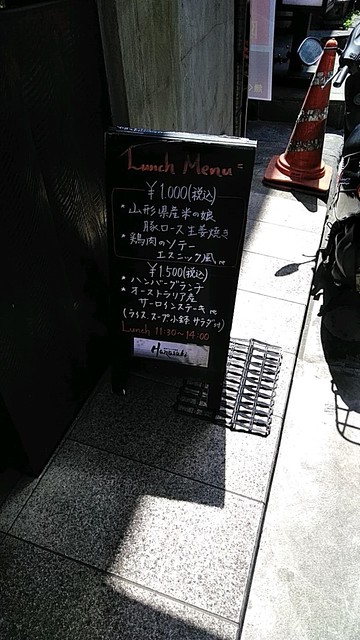 Lunch Menu
¥1.000(税込)
* 山形県産米の娘
豚ロース生姜焼き
* 鶏肉のソテー
エスニック風 etc
¥1.500(税込)
* ハンバーグランチ
* オーストラリア産
サーロインステーキ etc
(ライス スープ 小鉢 サラダ付)
Lunch 11:30~14:00